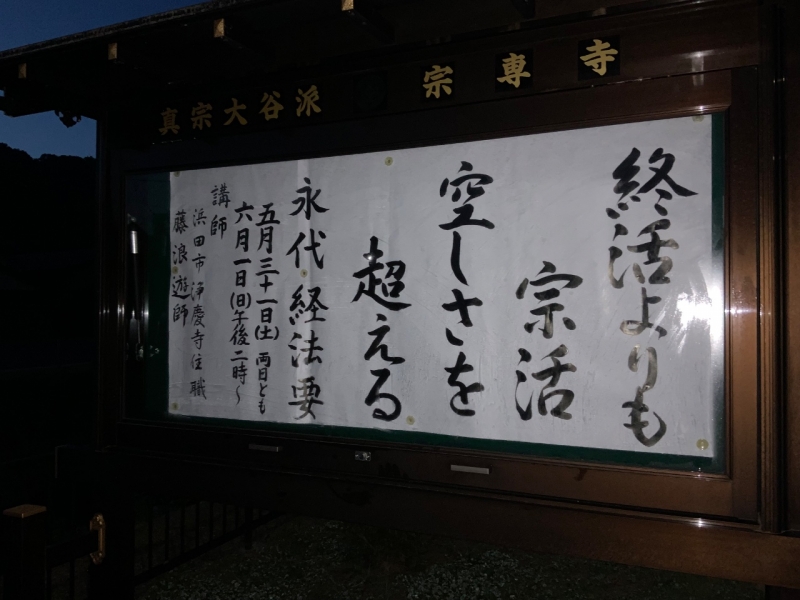 真宗大谷派 宗専寺
終活よりも
宗活
空しさを
超える
永代経法要
五月三十一日(土) 両日とも
六月一日(日)午後二時〜
講師
浜田市浄慶寺住職
藤浪遊師